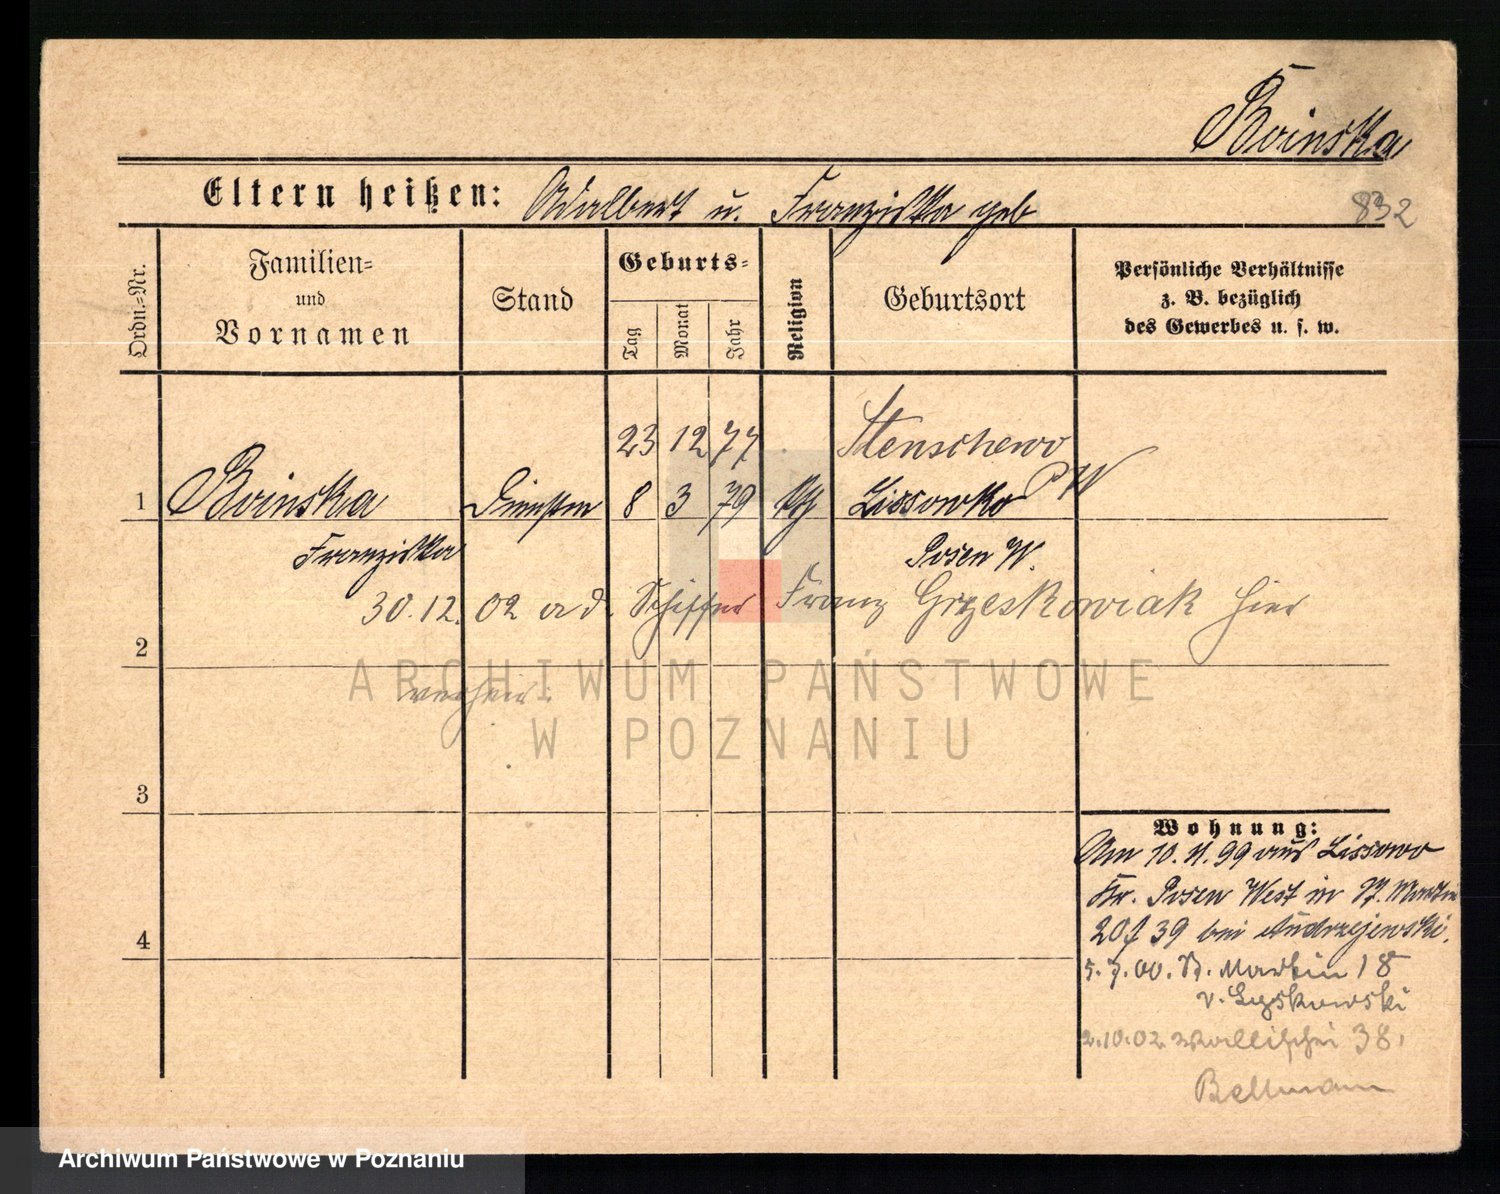 Boinska
Eltern heißen: Adalbert u. Franziska geb
832
Ordn.=Nr.
Familien=
und
Vornamen
Stand
Geburts=
Tag
Monat
Jahr
Religion
Geburtsort
Persönliche Verhältnisse
z. B. bezüglich
des Gewerbes u. s. w.
23 12 77 Stenschewo
P W
1 Boinska 8 3 79 kth Lissowko
Franziska Posen W.
30.12.02 a d. Schiffer Franz Grzeskowiak hier
2
verheir.
3
4
Wohnung:
Am 10. 11. 99 aus Lissowo
Kr. Posen West in St. Martin
39 bei Andrzejewski.
5.7.00. St. Martin 18
v. Lyskowski
2.10.02 Wallischei 38,
Bellmann
ARCHIWUM PAŃSTWOWE
W POZNANIU
Archiwum Państwowe w Poznaniu